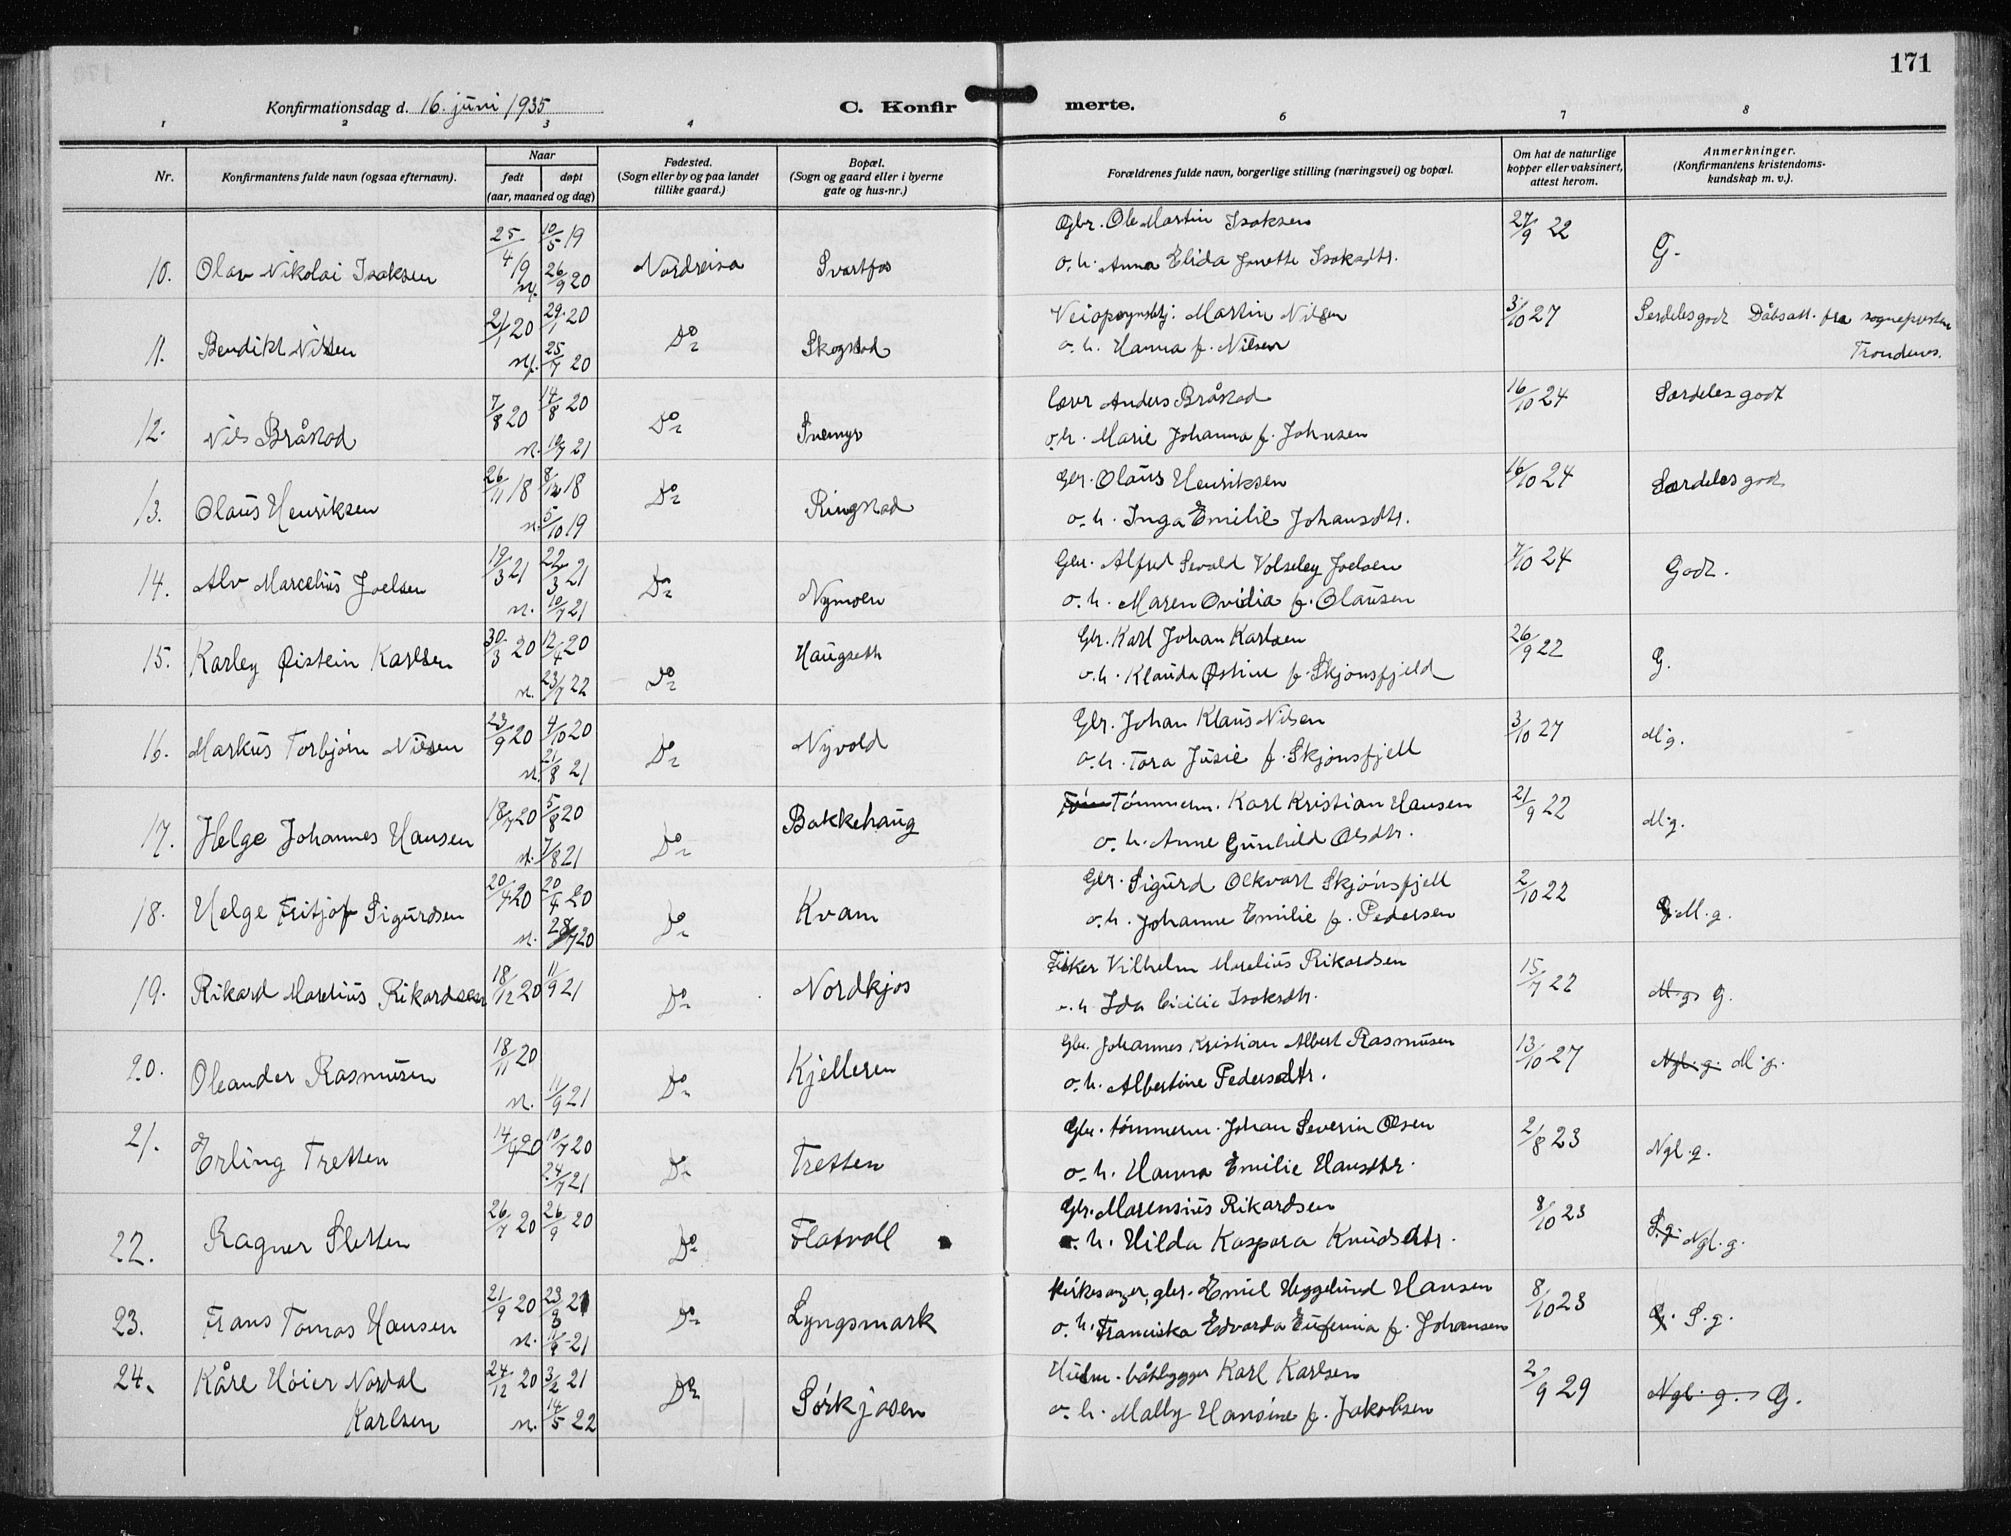 171
Konfirmationsdag d. 16. juni 1935
C. Konfir merte.
1 2 3 4 6 7 8
Nr.
Konfirmantens fulde navn (ogsaa efternavn).
Naar
født døpt
(aar, maaned og dag)
Fødested.
(Sogn eller by og paa landet
tillike gaard.)
Bopæl.
(Sogn og gaard eller i byerne
gate og hus-nr.)
Forældrenes fulde navn, borgerlige stilling (næringsvei) og bopæl.
Om hat de naturlige
kopper eller vaksinert,
attest herom.
Anmerkninger.
(Konfirmantens kristendoms-
kundskap m. v.).
25/4 19 10/5 19 Gbr. Ole Martin Isaksen 27/9 22
10. Olav Nikolai Isaksen 26/9 20 Nordreisa Svartfos o. h. Anna Elida Janette Isaksdtr. G.
21/1 20 29/1 20 Martin Nilsen 3/10 27 Serdeles godt Dåbsatt. fra sognepresten
11. Bendikt Nilsen 25/7 20 Do Skogstad o. h. Hanna f. Nilsen Trondenes.
7/8 20 14/8 20 Anders Bråstad 16/10 24 Særdeles godt
12. Nils Bråstad n. 10/7 21 Do Snemyr o. h. Marie Johanna f. Johnsen
26/11 18 8/12 18 Gbr. Olaus Henriksen 16/10 24 Særdeles godt
13. Olaus Henriksen n. 5/10 19 Do Ringstad o. h. Inga Emilie Johansdtr.
19/3 21 22/3 21 Gbr. Alfred Sevald Volseley Joelsen 7/10 24 Godt.
14. Alv Marcelius Joelsen n. 10/7 21 Do Nymoen o. h. Maren Ovidia f. Olausen
30/3 20 12/4 20 Gbr. Karl Johan Karlsen 26/9 22
15. Karley Øistein Karlsen n. 23/7 22 Do Haugseth o. h. Klauda Østine f. Skjönsfjeld G.
23/9 20 4/10 20 Gbr. Johan Klaus Nilsen 3/10 27
16. Markus Torbjörn Nilsen n. 21/8 21 Do Nyvold o. h. Tora Jusie f. Skjönsfjell M.g.
18/7 20 5/8 20 Tömmerm. Karl Kristian Hansen 21/9 22
17. Helge Johannes Hansen n. 7/8 21 Do Bakkehaug o. h. Anne Gunhild Olsdtr. M.g.
20/4 20 20/4 20 Gbr. Sigurd Olkvart Skjönsfjell 2/10 22
18. Helge Fritjof Sigurdsen n. 28/7 20 Do Kvam o. h. Johanne Emilie f. Pedersen M.g.
18/12 20 11/9 21 Fisker Vilhelm Marelius Rikardsen 15/7 22
19. Rikard Marelius Rikardsen Do Nordkjos o. h. Ida Cicilie Isaksdtr. M.g. G.
18/11 20 Gbr. Johannes Kristian Albert Rasmusen 13/10 27
20. Oleander Rasmusen n. 11/9 21 Do Kjelleren o. h. Albertine Pedersdtr. Ngl. g. M.g.
14/4 20 10/7 20 Gbr. tömmerm. Johan Severin Olsen 2/8 23
21. Erling Tretten 24/7 21 Do Tretten o. h. Hanna Emilie Hansdtr. Ngl. g.
26/7 20 26/9 20 Gbr. Marensius Rikardsen 8/10 23
22. Ragner Sletten Do Flatvoll o. h. Hilda Kaspara Knudsdtr. S.g. Ngl. g.
21/9 20 23/3 21 Kirkesanger, gbr. Emil Heggelund Hansen 8/10 23
23. Frans Tomas Hansen n. Do Lyngsmark o. h. Franciska Edvarda Eufemia f. Johansen S.g.
24. Kåre Höier Nordal 24/12 20 3/2 21 Do båtbygger Karl Karlsen 2/9 29
Karlsen n. 14/5 22 Sörkjosen o. h. Mally Hansine f. Jakobsen Ngl. g. G.